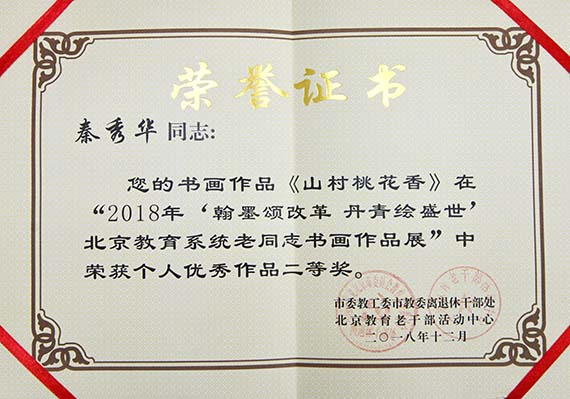 荣誉证书
秦秀华 同志：
您的书画作品《山村桃花香》在
“2018年‘翰墨颂改革 丹青绘盛世’
北京教育系统老同志书画作品展”中
荣获个人优秀作品二等奖。
市委教工委市教委离退休干部处
北京教育老干部活动中心
二〇一八年十二月